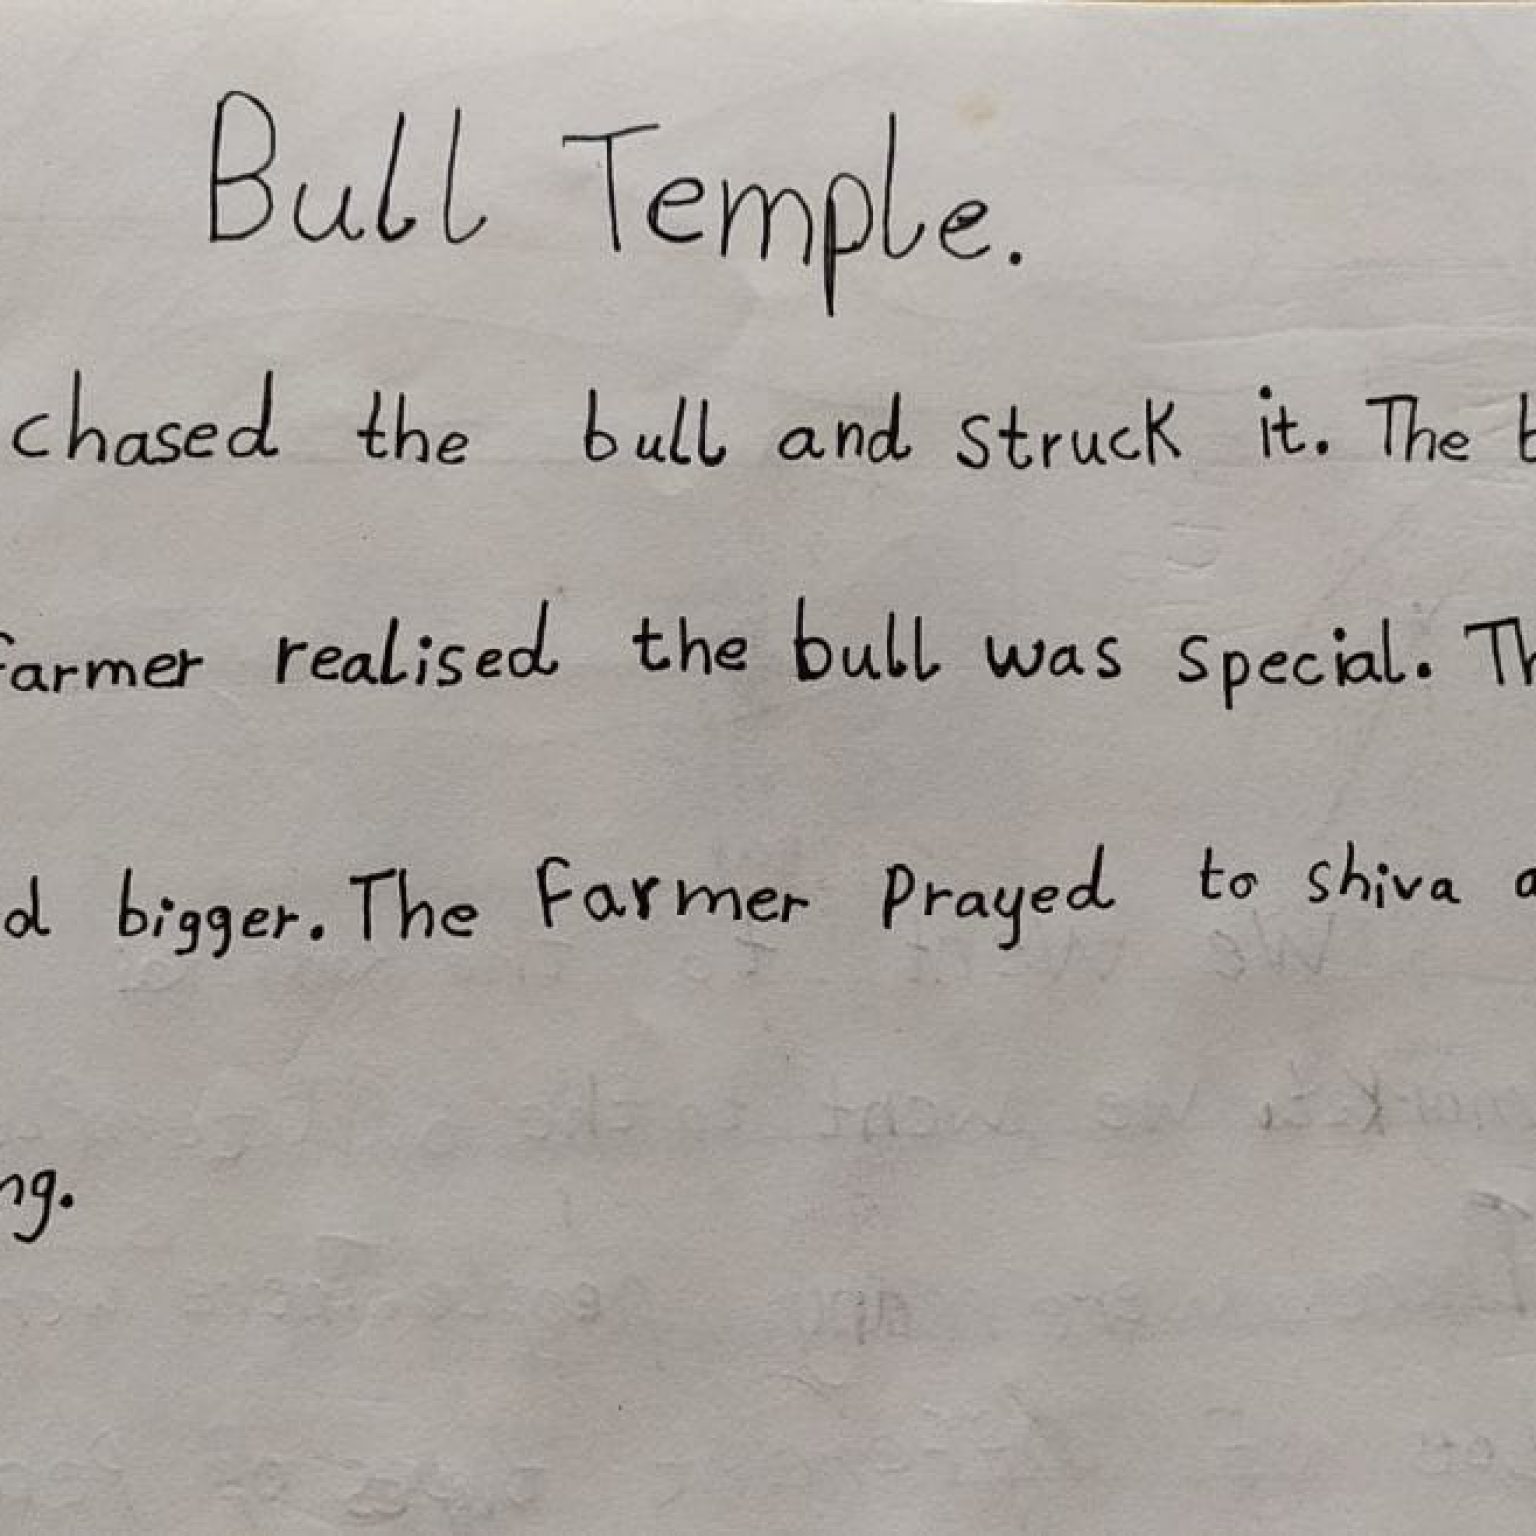 Bull Temple.
chased the bull and struck it. The
farmer realised the bull was special.
bigger. The farmer Prayed to shiva